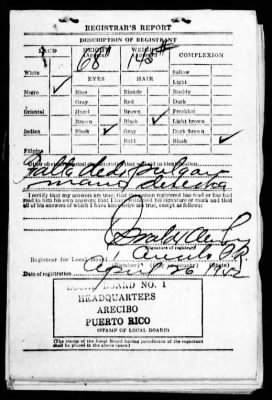 REGISTRAR'S REPORT
DESCRIPTION OF REGISTRANT
RACE HEIGHT WEIGHT COMPLEXION
68" 145#
White Sallow
EYES HAIR Light
Negro ✓ Blue Blonde Ruddy
Gray Red Dark
Oriental Hazel Brown Freckled
Brown Black ✓ Light brown
Indian Black ✓ Gray Dark brown
Bald Black ✓
Filipino
Other obvious physical characteristics that will aid in identification
Falta dedo pulgar
mano derecha
I certify that my answers are true; that the person registered has read or has had
read to him his own answers; that I have witnessed his signature or mark and that
all of his answers of which I have knowledge are true, except as follows:
Signature of registrar
Registrar for Local Board 1 Arecibo P.R.
(Number) (State)
Date of registration April 26 1942
LOCAL BOARD NO. 1
HEADQUARTERS
ARECIBO
PUERTO RICO
(STAMP OF LOCAL BOARD)
(The stamp of the Local Board having jurisdiction of the registrant
shall be placed in the above space)